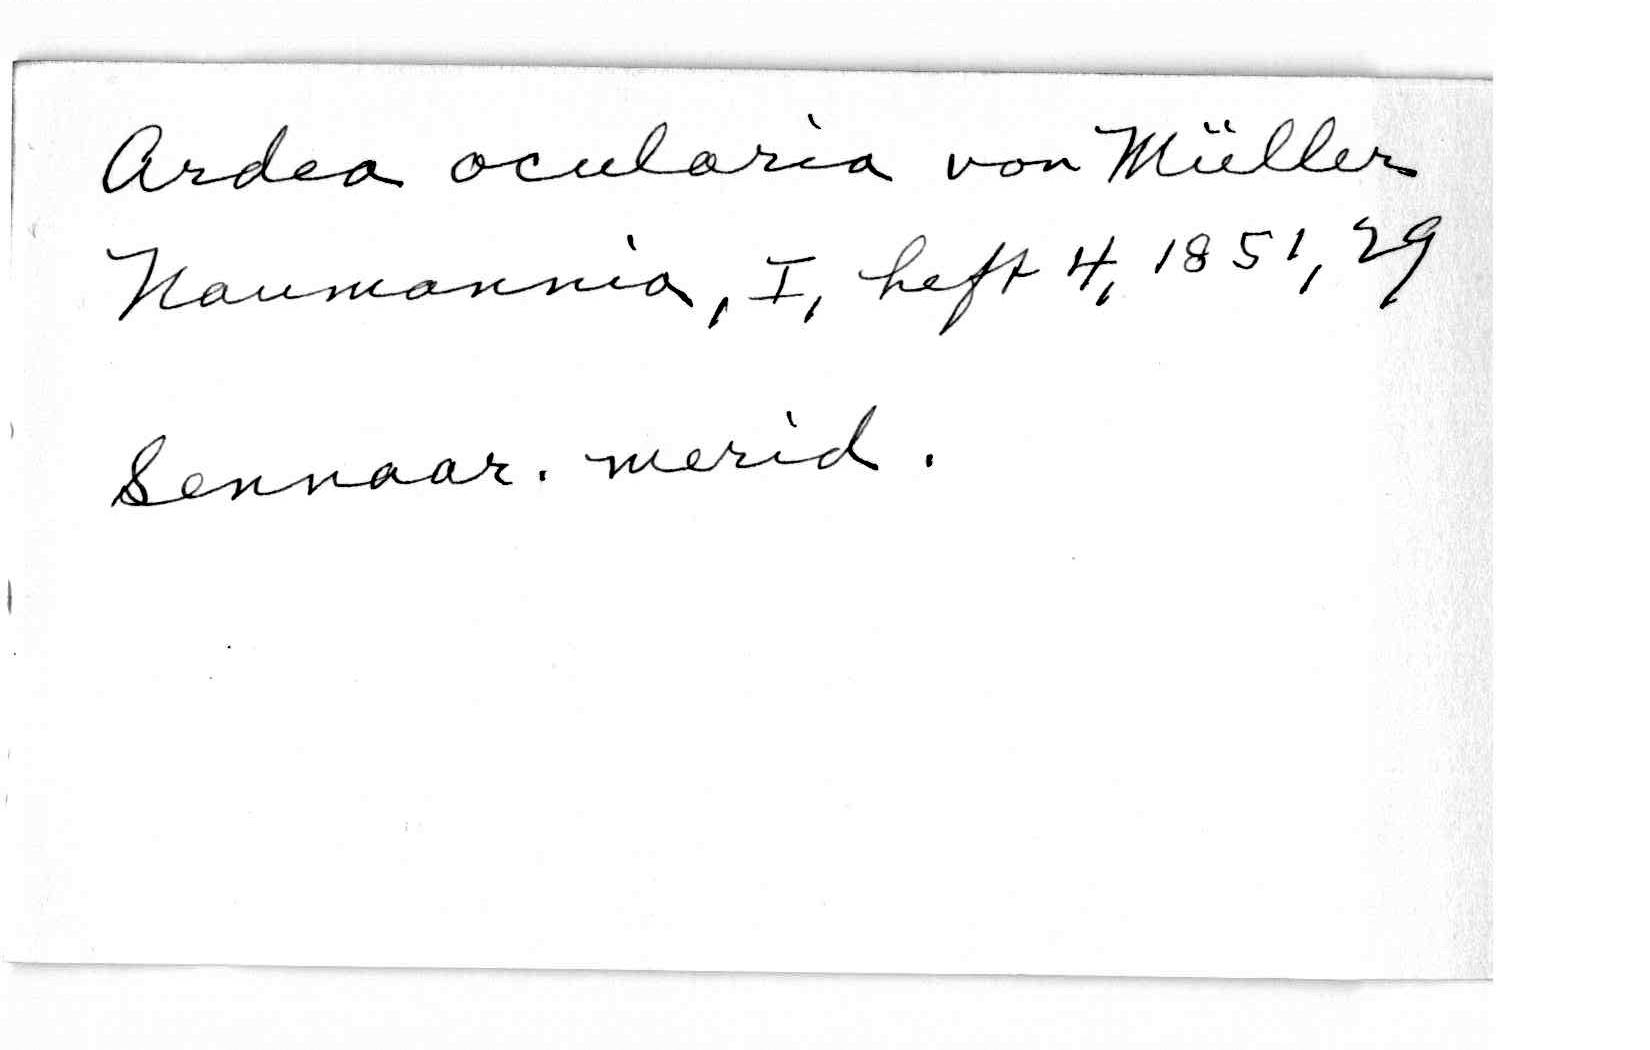 Ardea ocularia von Müller
Naumannia, I, heft 4, 1851, 29
Sennaar. merid.